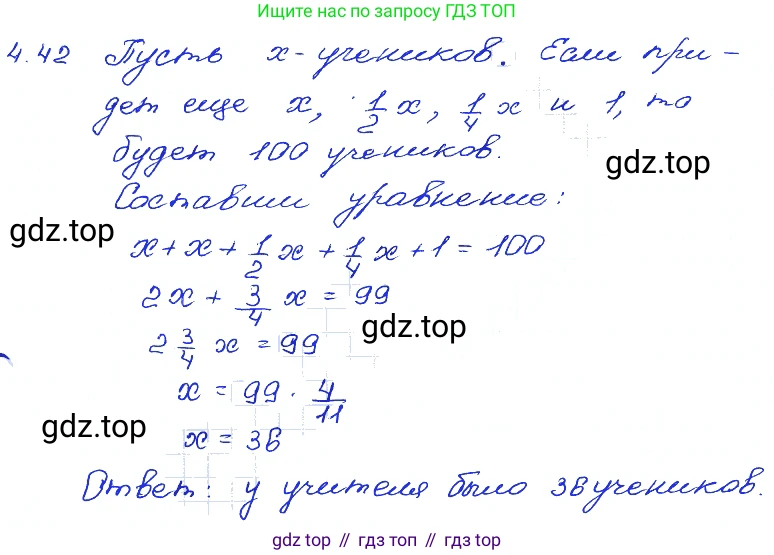 Ищите нас по запросу ГДЗ ТОП
4.42 Пусть x - учеников. Если при-
дет еще x, 1/2 x, 1/4 x и 1, то
будет 100 учеников.
gdz.top
Составим уравнение:
gdz.top
x + x + 1/2 x + 1/4 x + 1 = 100
2x + 3/4 x = 99
gdz.top
2 3/4 x = 99
x = 99 · 4/11
gdz.top
x = 36
Ответ: у учителя было 36 учеников.
gdz.top // гдз топ // gdz.top